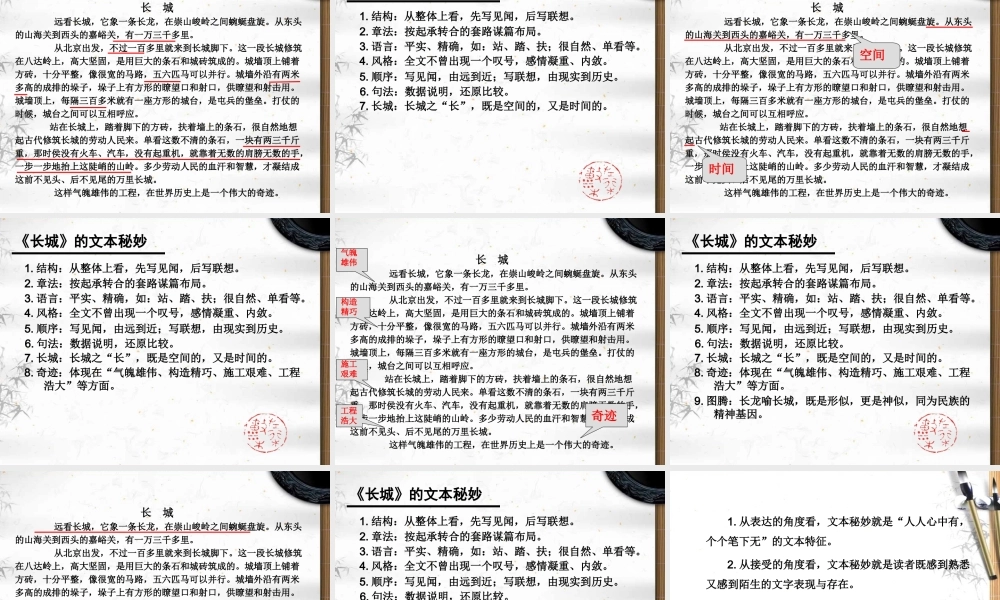 长 城
远看长城，它象一条长龙，在崇山峻岭之间蜿蜒盘旋。从东头
的山海关到西头的嘉峪关，有一万三千多里。
从北京出发，不过一百多里就来到长城脚下。这一段长城修筑
在八达岭上，高大坚固，是用巨大的条石和城砖筑成的。城墙顶上铺着
方砖，十分平整，像很宽的马路，五六匹马可以并行。城墙外沿有两米
多高的成排的垛子，垛子上有方形的瞭望口和射口，供瞭望和射击用。
城墙顶上，每隔三百多米就有一座方形的城台，是屯兵的堡垒。打仗的
时候，城台之间可以互相呼应。
站在长城上，踏着脚下的方砖，扶着墙上的条石，很自然地想
起古代修筑长城的劳动人民来。单看这数不清的条石，一块有两三千斤
重，那时侯没有火车、汽车，没有起重机，就靠着无数的肩膀无数的手，
一步一步地抬上这陡峭的山岭。多少劳动人民的血汗和智慧，才凝结成
这前不见头、后不见尾的万里长城。
这样气魄雄伟的工程，在世界历史上是一个伟大的奇迹。
1. 结构：从整体上看，先写见闻，后写联想。
2. 章法：按起承转合的套路谋篇布局。
3. 语言：平实、精确，如：站、踏、扶；很自然、单看等。
4. 风格：全文不曾出现一个叹号，感情凝重、内敛。
5. 顺序：写见闻，由远到近；写联想，由现实到历史。
6. 句法：数据说明，还原比较。
7. 长城：长城之“长”，既是空间的，又是时间的。
长 城
远看长城，它象一条长龙，在崇山峻岭之间蜿蜒盘旋。从东头
的山海关到西头的嘉峪关，有一万三千多里。
空间
从北京出发，不过一百多里就来到长城脚下。这一段长城修筑
在八达岭上，高大坚固，是用巨大的条石和城砖筑成的。城墙顶上铺着
方砖，十分平整，像很宽的马路，五六匹马可以并行。城墙外沿有两米
多高的成排的垛子，垛子上有方形的瞭望口和射口，供瞭望和射击用。
城墙顶上，每隔三百多米就有一座方形的城台，是屯兵的堡垒。打仗的
时候，城台之间可以互相呼应。
站在长城上，踏着脚下的方砖，扶着墙上的条石，很自然地想
起古代修筑长城的劳动人民来。单看这数不清的条石，一块有两三千斤
重，时侯没有火车、汽车，没有起重机，就靠着无数的肩膀无数的手，
时间
一步这陡峭的山岭。多少劳动人民的血汗和智慧，才凝结成
这前、后不见尾的万里长城。
这样气魄雄伟的工程，在世界历史上是一个伟大的奇迹。
《长城》的文本秘妙
1. 结构：从整体上看，先写见闻，后写联想。
2. 章法：按起承转合的套路谋篇布局。
3. 语言：平实、精确，如：站、踏、扶；很自然、单看等。
4. 风格：全文不曾出现一个叹号，感情凝重、内敛。
5. 顺序：写见闻，由远到近；写联想，由现实到历史。
6. 句法：数据说明，还原比较。
7. 长城：长城之“长”，既是空间的，又是时间的。
8. 奇迹：体现在“气魄雄伟、构造精巧、施工艰难、工程
浩大”等方面。
气魄
雄伟
长 城
远看长城，它象一条长龙，在崇山峻岭之间蜿蜒盘旋。从东头
的山海关到西头的嘉峪关，有一万三千多里。
构造
精巧
从北京出发，不过一百多里就来到长城脚下。这一段长城修筑
达岭上，高大坚固，是用巨大的条石和城砖筑成的。城墙顶上铺着
方砖，十分平整，像很宽的马路，五六匹马可以并行。城墙外沿有两米
多高的成排的垛子，垛子上有方形的瞭望口和射口，供瞭望和射击用。
城墙顶上，每隔三百多米就有一座方形的城台，是屯兵的堡垒。打仗的
，城台之间可以互相呼应。
施工
艰难
站在长城上，踏着脚下的方砖，扶着墙上的条石，很自然地想
起古代修筑长城的劳动人民来。单看这数不清的条石，一块有两三千斤
，那时侯没有火车、汽车，没有起重机，就靠着无数的手，
工程
浩大
一步地抬上这陡峭的山岭。多少劳动人民的血汗和智成
奇迹
这前不见头、后不见尾的万里长城。
这样气魄雄伟的工程，在世界历史上是一个伟大的奇迹。
《长城》的文本秘妙
1. 结构：从整体上看，先写见闻，后写联想。
2. 章法：按起承转合的套路谋篇布局。
3. 语言：平实、精确，如：站、踏、扶；很自然、单看等。
4. 风格：全文不曾出现一个叹号，感情凝重、内敛。
5. 顺序：写见闻，由远到近；写联想，由现实到历史。
6. 句法：数据说明，还原比较。
7. 长城：长城之“长”，既是空间的，又是时间的。
8. 奇迹：体现在“气魄雄伟、构造精巧、施工艰难、工程
浩大”等方面。
9. 图腾：长龙喻长城，既是形似，更是神似，同为民族的
精神基因。
长 城
远看长城，它象一条长龙，在崇山峻岭之间蜿蜒盘旋。从东头
的山海关到西头的嘉峪关，有一万三千多里。
从北京出发，不过一百多里就来到长城脚下。这一段长城修筑
在八达岭上，高大坚固，是用巨大的条石和城砖筑成的。城墙顶上铺着
方砖，十分平整，像很宽的马路，五六匹马可以并行。城墙外沿有两米
多高的成排的垛子，垛子上有方形的瞭望口和射口，供瞭望和射击用。
《长城》的文本秘妙
1. 结构：从整体上看，先写见闻，后写联想。
2. 章法：按起承转合的套路谋篇布局。
3. 语言：平实、精确，如：站、踏、扶；很自然、单看等。
4. 风格：全文不曾出现一个叹号，感情凝重、内敛。
5. 顺序：写见闻，由远到近；写联想，由现实到历史。
6. 句法：数据说明，还原比较。
1. 从表达的角度看，文本秘妙就是“人人心中有，
个个笔下无”的文本特征。
2. 从接受的角度看，文本秘妙就是读者既感到熟悉
又感到陌生的文字表现与存在。